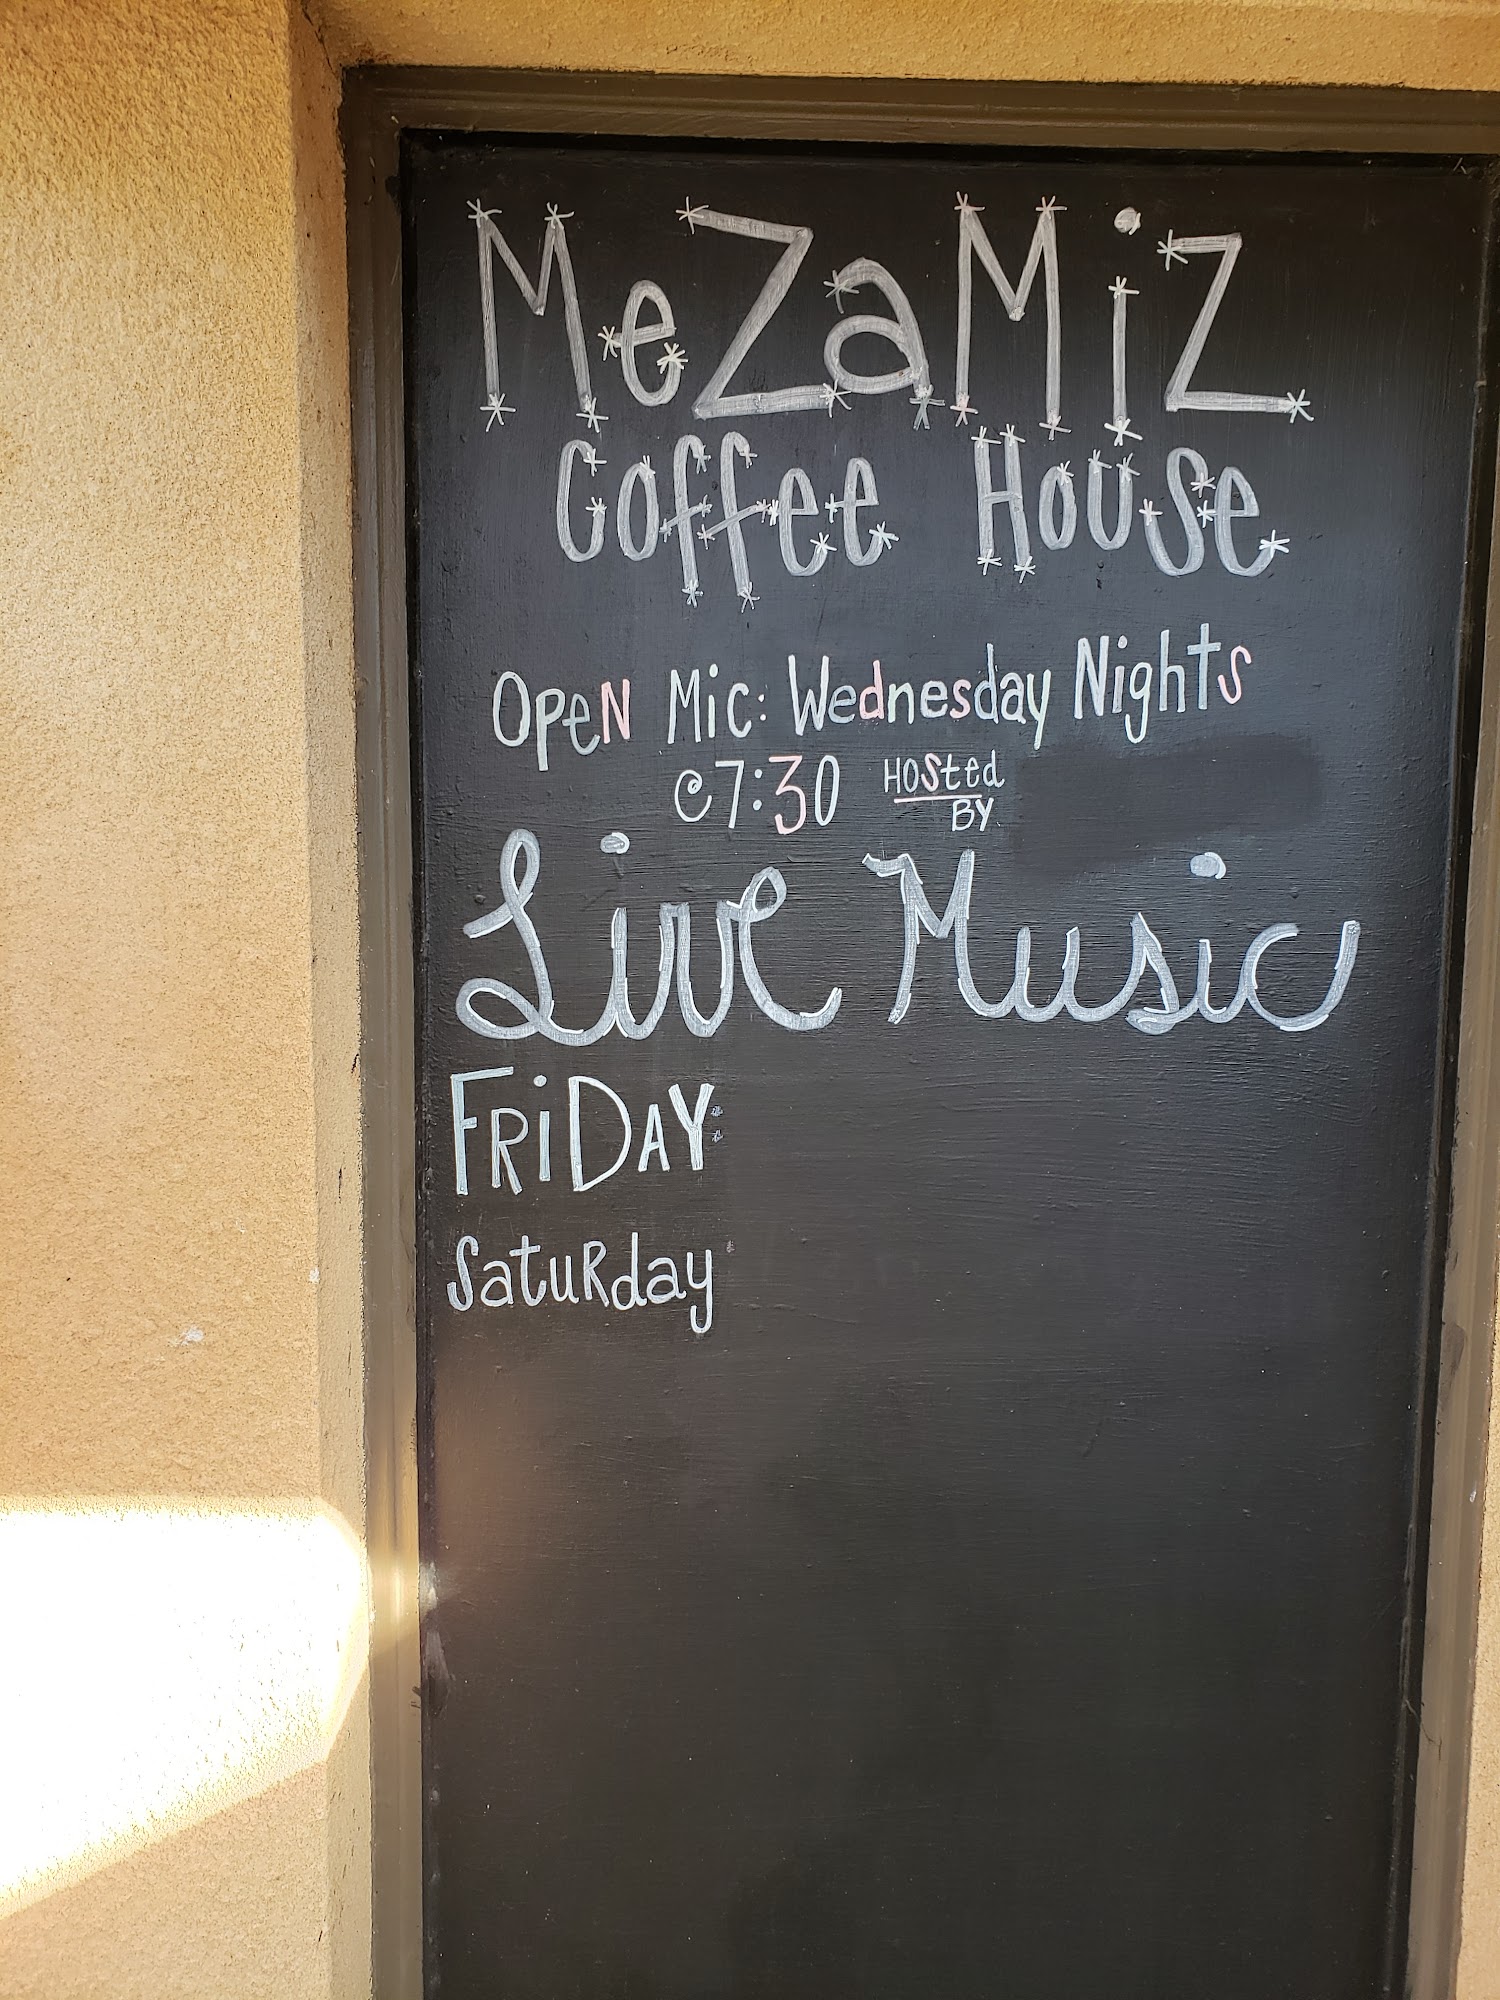 MeZaMiZ
Coffee House
OpeN Mic: Wednesday Nights
@7:30 HOSted
BY
Live Music
FRiDAY:
SatuRday